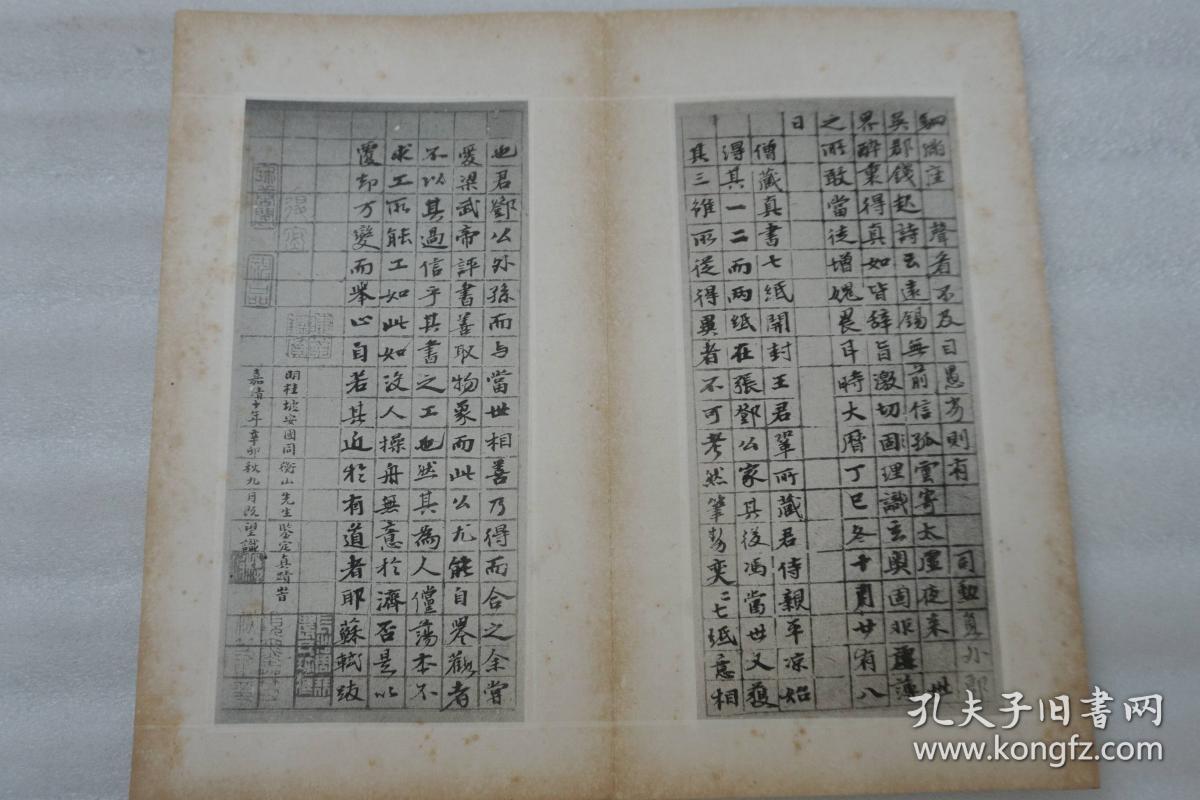 駟滿座 聲看不及目愚劣則有 司勳員外郎
吳郡錢起詩云遠錫無前信孤雲寄太虛夜来 世
界醉裏得真如皆辞旨激切固理識玄奧固非虛薄
之所敢當徒增媿畏耳時大曆丁巳冬十月廿有八
日
僧藏真書七紙開封王君鞏所藏君侍親平凉始
得其一二而兩紙在張鄧公家其後馮當世又獲
其三雖所從得異者不可考然筆勢奕二七紙意相
也君鄧公外孫而与當世相善乃得而合之余嘗
愛梁武帝評書善取物象而此公尤能自譽觀者
不以其過信乎其書之工也然其為人儻蕩本不
求工所能工如此如沒人操舟無意於濟否是以
覆却万變而舉心自若其近於有道者耶蘇軾跋
明桂坡安國同衡山先生鉴定真蹟皆
嘉靖十年辛卯秋九月既望識
孔夫子旧書网
www.kongfz.com